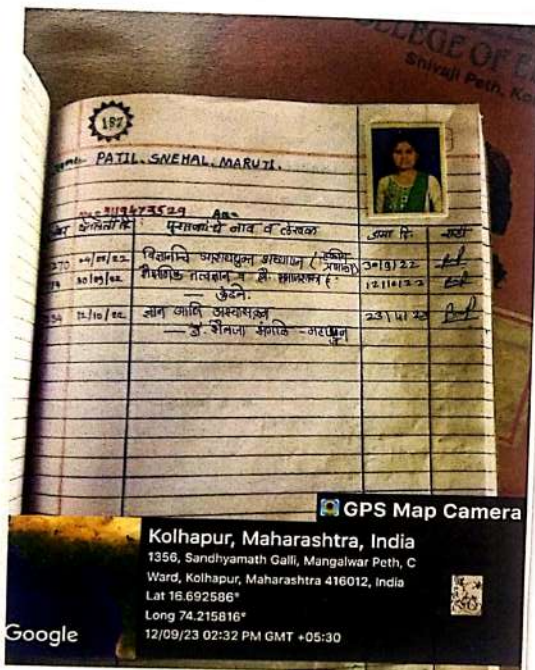 LLEGE OF E
Shivaji Peth, Ko
187
PATIL. SNEHAL. MARUTI.
9119473529
पुस्तकाचे नाव व लेखक जमा दि. सही
270 विज्ञानाचे आशययुक्त अध्यापन 30/9/22
30/09/22 शैक्षणिक तत्वज्ञान व शै. समाजशास्त्र 12/10/22
— कुंडले.
12/10/22 ज्ञान आणि अभ्यासक्रम
— डॉ. शैलजा
GPS Map Camera
Kolhapur, Maharashtra, India
1356, Sandhyamath Galli, Mangalwar Peth, C
Ward, Kolhapur, Maharashtra 416012, India
Lat 16.692586°
Long 74.215816°
12/09/23 02:32 PM GMT +05:30
Google